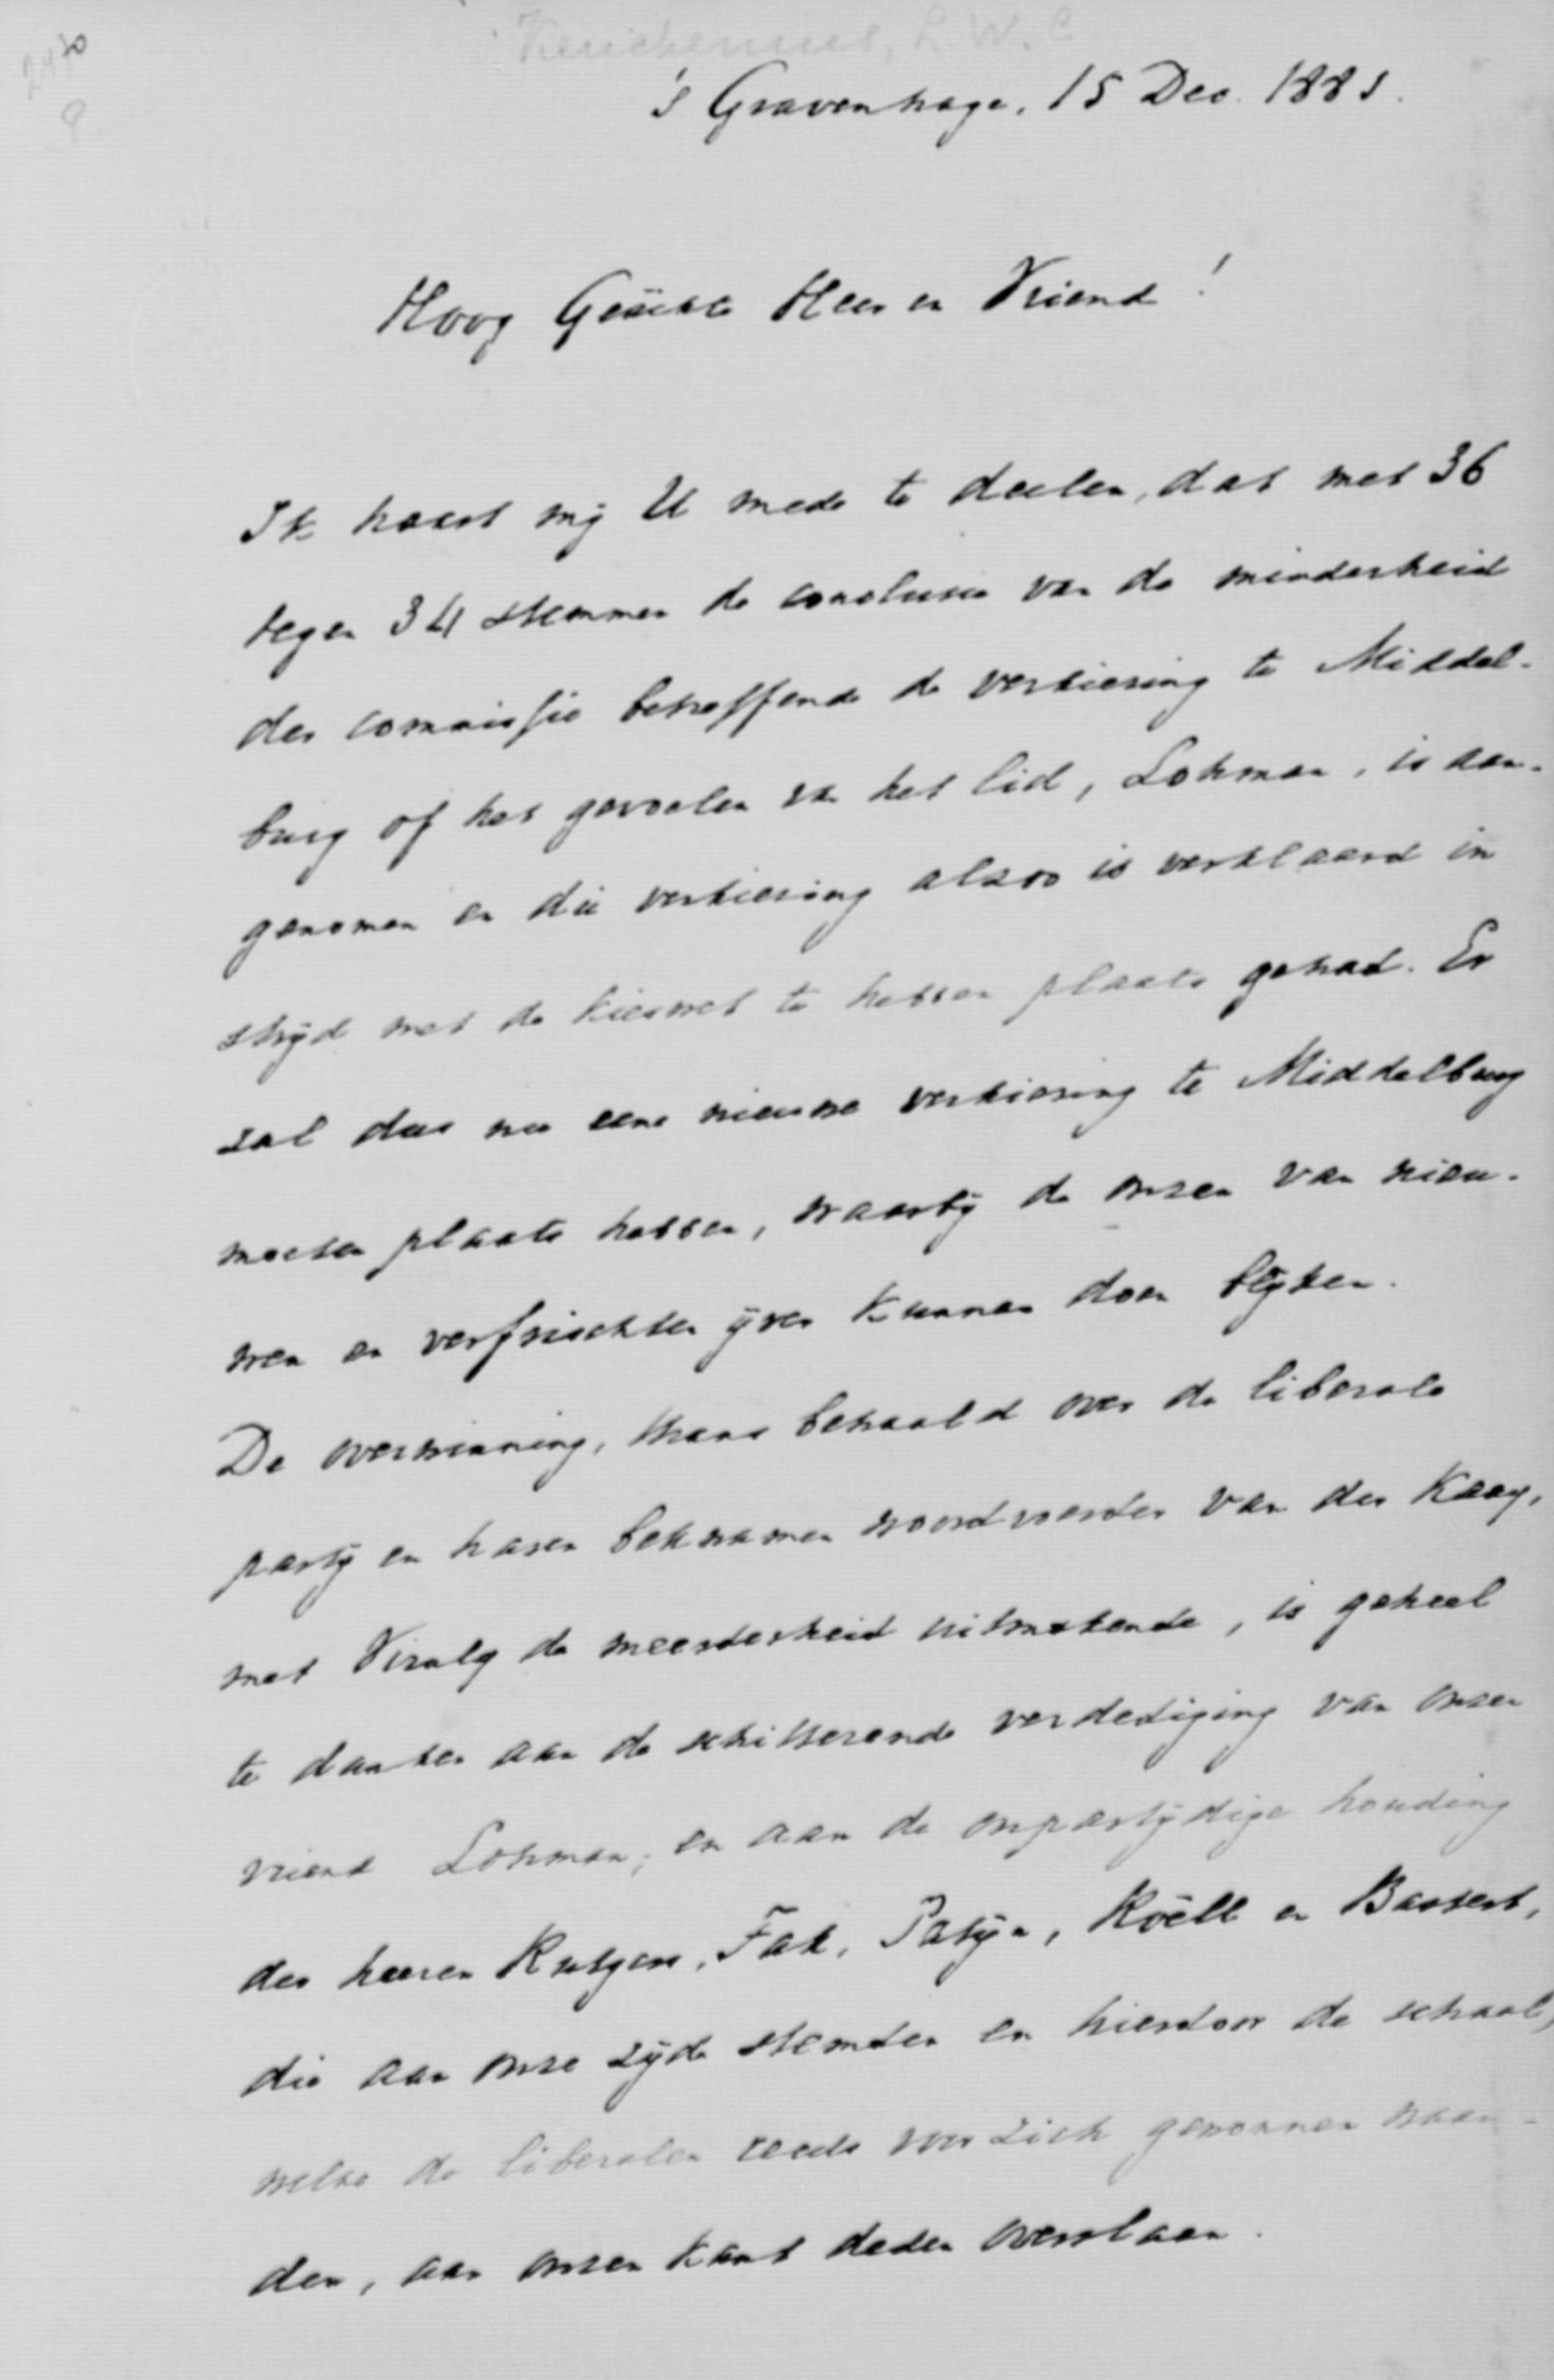 Keuchenius, L. W. C.
2470
's Gravenhage, 15 Dec. 1881.
Hoog Geächte Heer en Vriend!
Ik haast mij U mede te deelen, dat met 36
tegen 34 stemmen de conclusie van de minderheid
der commissie betreffende de verkiezing te Middel-
burg of het gevoelen van het lid, Lohman, is aan-
genomen en die verkiezing alzoo is verklaard in
strijd met de kieswet te hebben plaats gehad. Er
zal dus nu eene nieuwe verkiezing te Middelburg
moeten plaats hebben, waarbij de onzen van nieu-
wen en verfrischten ijver kunnen doen blijken.
De overwinning, thans behaald over de liberale
partij en haren bekwamen woordvoerder van der Kaay,
met Viruly de meerderheid uitmakende, is geheel
te danken aan de schitterende verdediging van onzen
vriend Lohman, en aan de onpartijdige houding
der heeren Rutgers, Fak, Patijn, Röell en Bastert,
die aan onze zijde stemden en hierdoor de schaal,
welke de liberalen reeds voor zich gewonnen waan-
den, aan onzen kant deden overslaan.